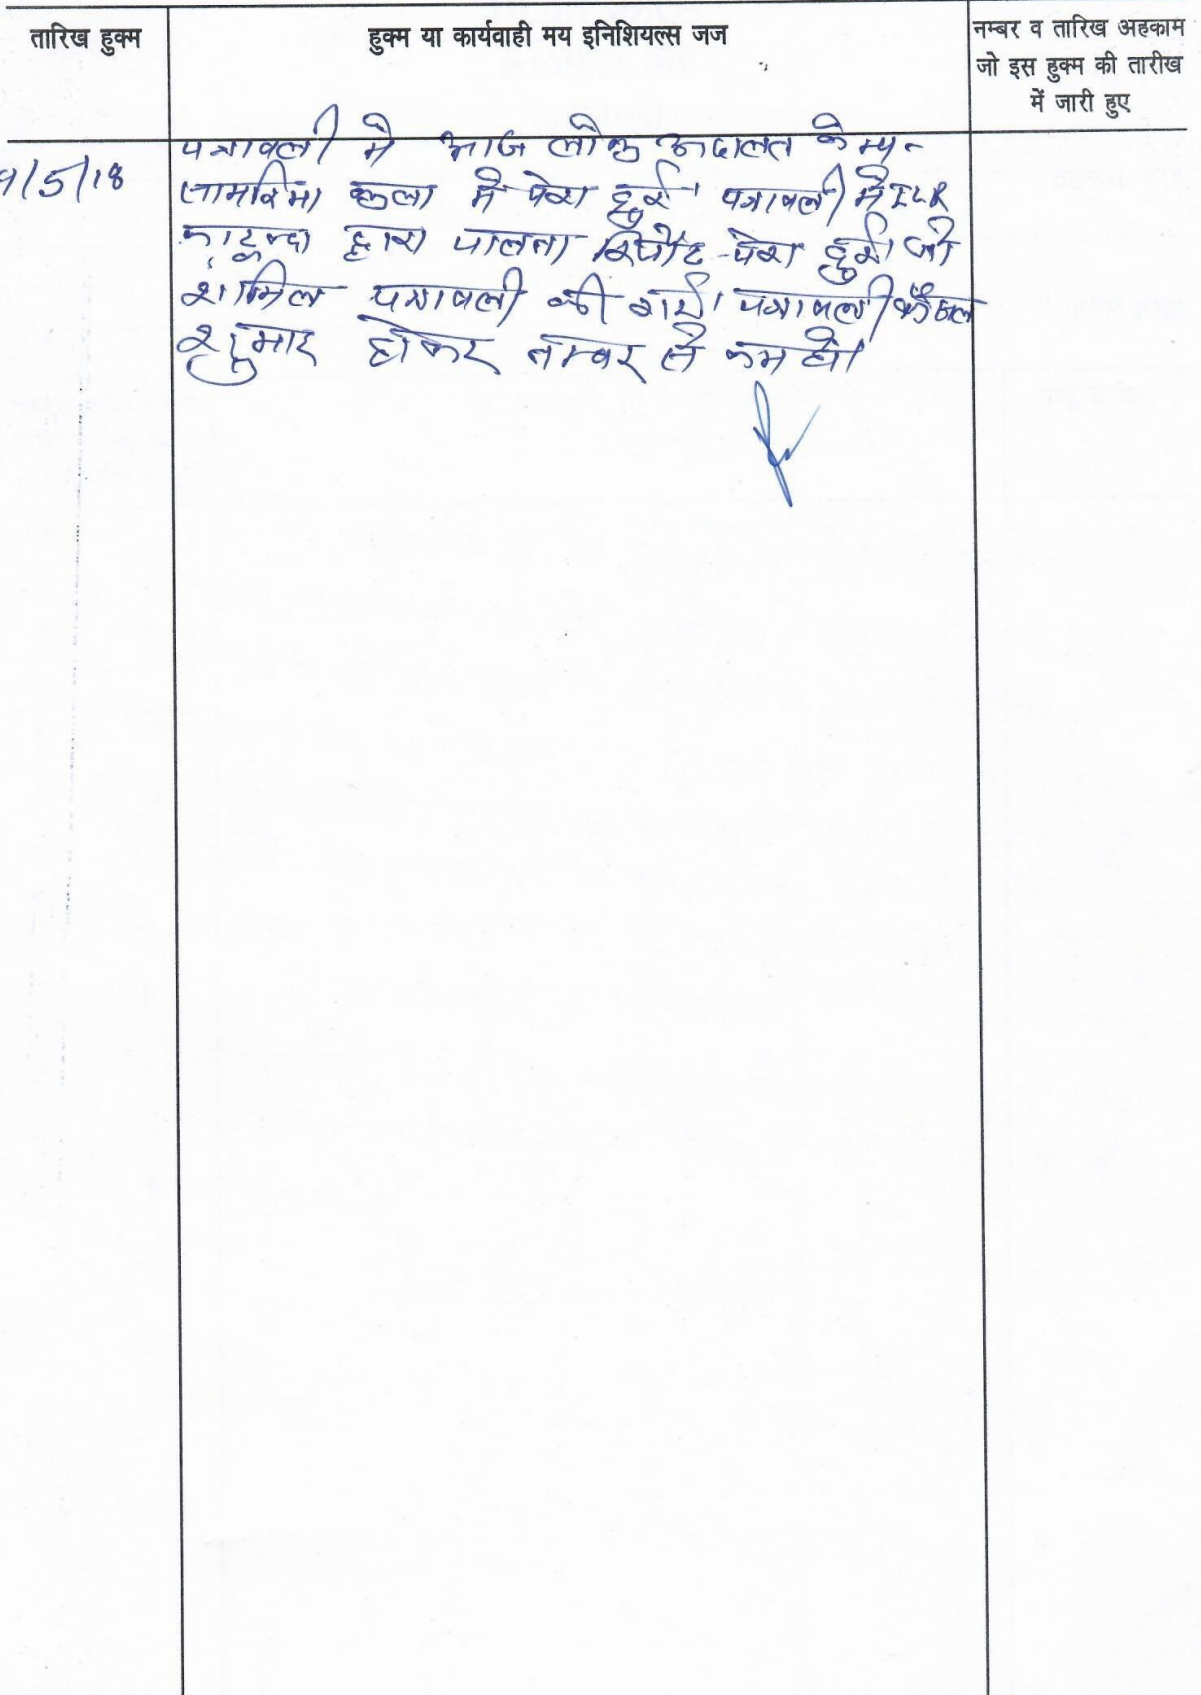 तारिख हुक्म
हुक्म या कार्यवाही मय इनिशियल्स जज
नम्बर व तारिख अहकाम
जो इस हुक्म की तारीख
में जारी हुए
9/5/18
पत्रावली में आज लोक अदालत केम्प
कला में पेश हुई। पत्रावली में ILR
द्वारा पालना रिपोर्ट पेश हुई। जो
शामिल पत्रावली की गई। पत्रावली फैसल
शुमार होकर नम्बर से कम हो।